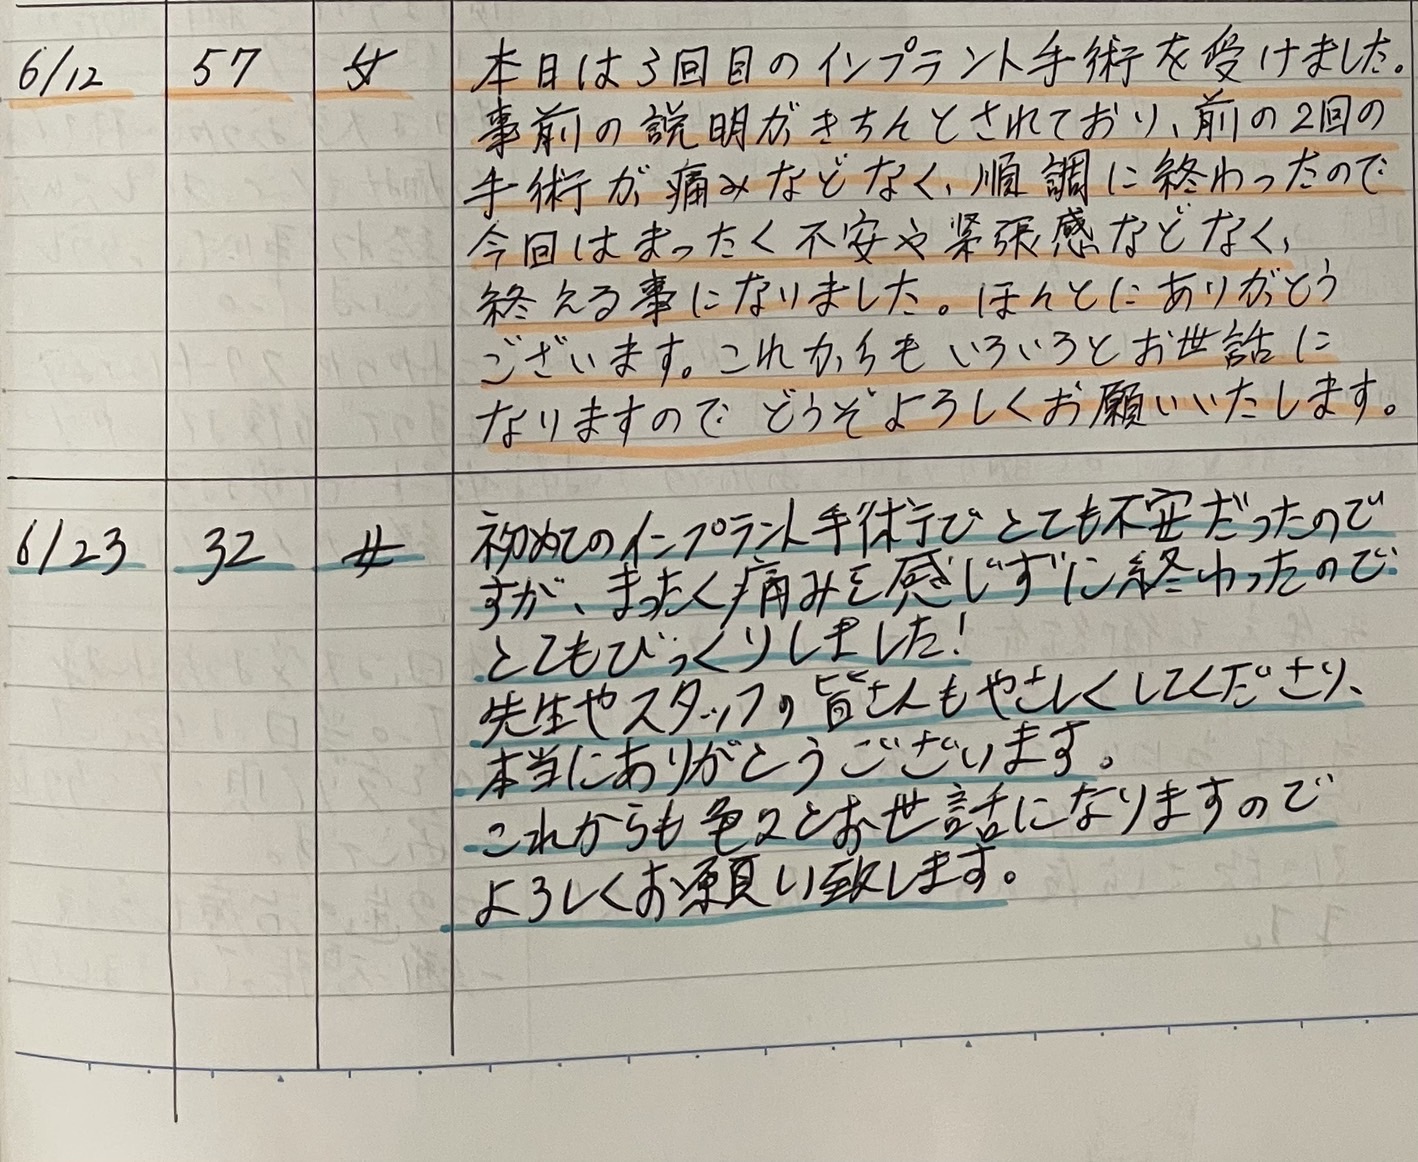 6/12 57 女 本日は3回目のインプラント手術を受けました。
事前の説明がきちんとされており、前の2回の
手術が痛みなどなく、順調に終わったので
今回はまったく不安や緊張感などなく、
終える事になりました。ほんとにありがとう
ございます。これからもいろいろとお世話に
なりますのでどうぞよろしくお願いいたします。
6/23 32 女 初めてのインプラント手術でとても不安だったので
すが、まったく痛みを感じずに終わったので
とてもびっくりしました!
先生やスタッフの皆さんもやさしくしてくださり、
本当にありがとうございます。
これからも色々とお世話になりますので
よろしくお願い致します。